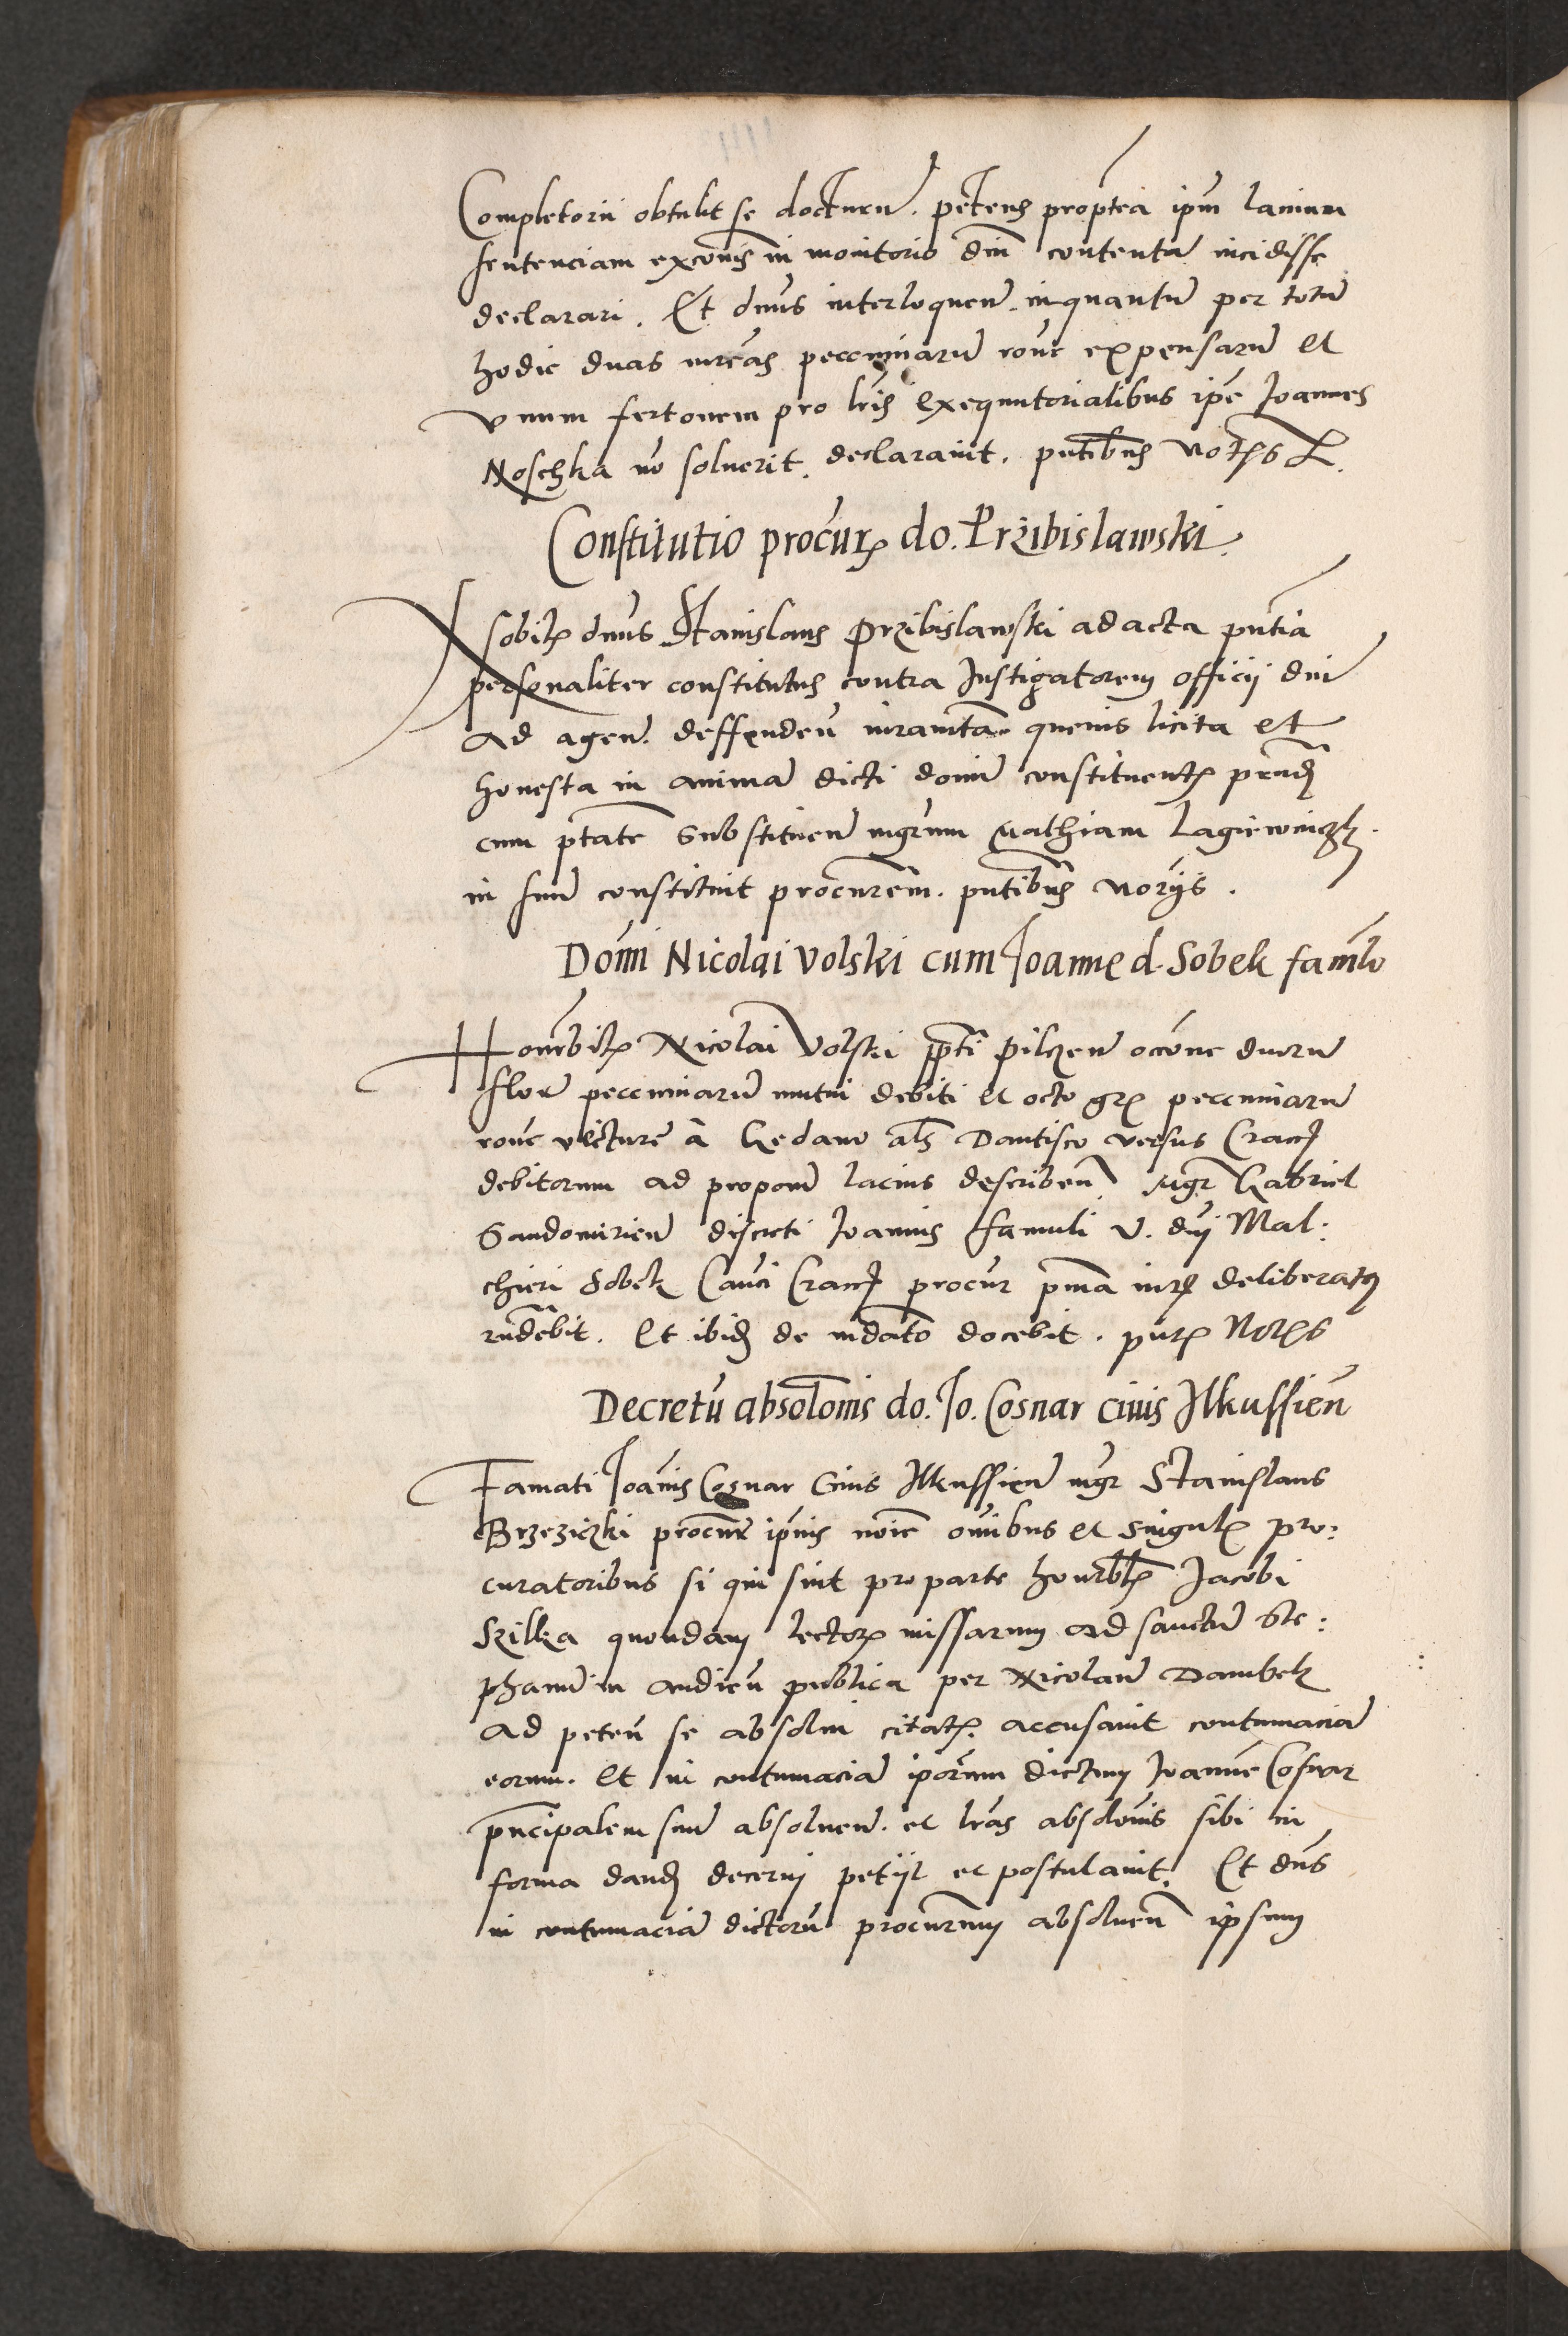 Completorii obtulit se docturū. petens propťea ipm̄ laniam
sentenciam excōnis in monitorio dn̄i contentā incidisse
declarari. Et dnus interloquen̄. inquantū per totū
hodie duas mrcās peccuniarū rōne expensarū et
vnum fertonem pro lr̄is exequutorialibus ip̄e Joannes
Noschka nō soluerit. declarauit. pn̄tibus
Constitutio procur do. Przibislawski.
dnus Stanislaus Przibislawski ad acta pn̄tia
personaliter constitutus contra Instigatorem officij dni
ad agen̄. deffenden̄ iurauitā queuis licita et
honesta in animā dicti domī constituent
cum ptāte Substituen̄ mgrum Mathiam Lagiewniczk.
in suū constituit procurēm. pn̄tibus norijs.
Domī Nicolai Volski cum Joanne d. Sobek famlo
Honorbil Nicolai Volski ppti pilczen̄ occōne duorū
flor̄ peccuniarū mutui debiti et octo gr peccuniarū
rōne vecture à Gedano als Dantisco versus Crac
debitorum ad propon̄ lacius describen̄. Mgr Gabriel
Sandomirien̄ discreti Joannis famuli V. dnj Mal:
chieri Sobek Canci Crac procur pma iur deliberat
rn̄debit. Et ibid de mdāto docebit. pn̄t Not
Decretū absolōnis do. Jo. Cosnar ciuis Ilkussien̄
Famati Joanis Cosnar Ciuis Ilkussien̄ mgr Stanislaus
Brzeziczki procur̄ ipius noīe omībus et singul pro:
curatoribus si qui sint pro parte honorbl Jacobi
Szilka quondam lector missarum ad sanctū Ste:
phanū in audien̄ publica per Nicolaū Dambek
ad peten̄ se absolui citat. accusauit contumaciā
eorum. Et in contumaciā ipōrum dictum Joannē Cosnar
pn̄cipalem suū absoluen̄. et lrās absolōnis sibi in
forma dand decerni petijt et postulauit. Et dn̄s
in contumaciā dictorū procurum absoluen̄ ipsum